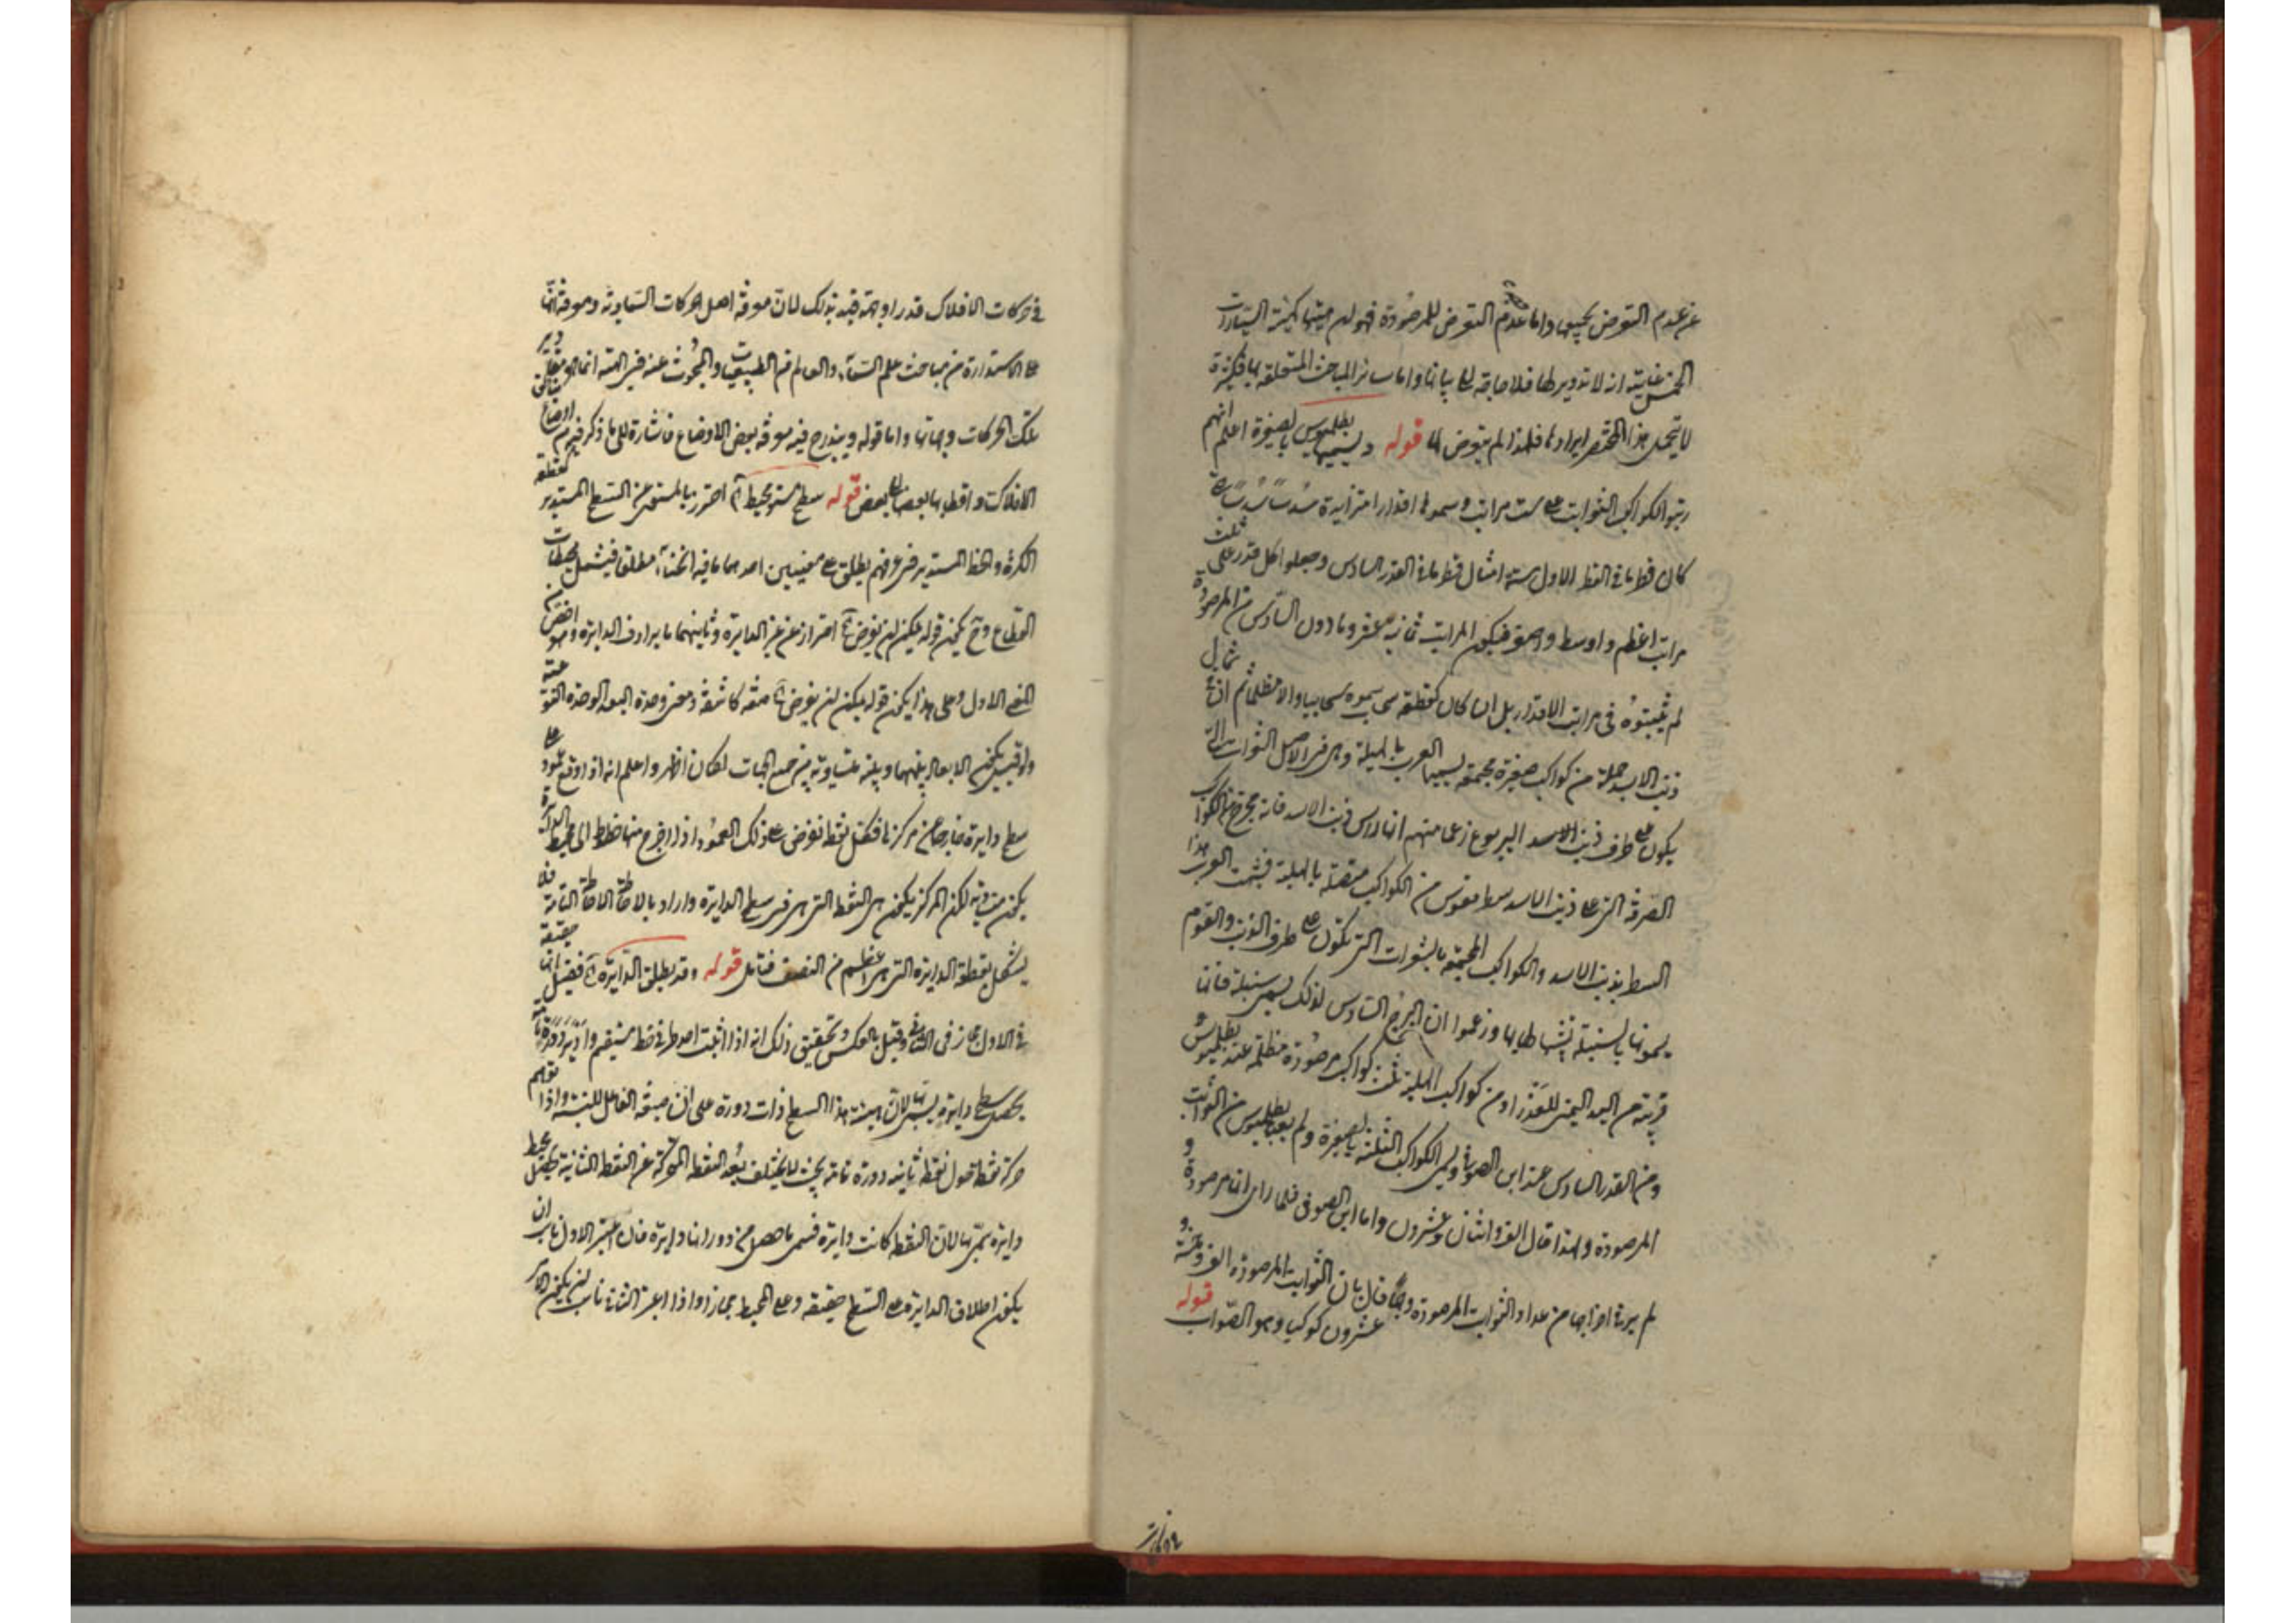 عن عدم التعرض بجيبها واما عدم التعرض للمرصودة فهو لان هيئتها كهيئة السيارات
الخمس غايته انه لا تدوير لها فلا حاجة الى بيانها واما سائر المباحث المتعلقة بها فكثيرة
لا يتحمل هذا المختصر ايرادها فلهذا لم يتعرض لها قوله ويسميها بطلميوس بالصفيرة اعلم انهم
رتبوا الكواكب الثوابت على ست مراتب وسموها اقدارا متزايدة سدسا سدسا حتى
كان قطر ما في القدر الاول ستة امثال قطر ما في القدر السادس وجعلوا كل قدر على ثلث
مراتب اعظم واوسط واصغر فيكون المراتب ثمانية عشر وما دون السادس من المرصودة
لم يثبتوه في مراتب الاقدار بل ان كان كقطعة سحاب سموه سحابيا والا مظلما ثم ان في شمال
ذنب الاسد جملة من كواكب صغيرة مجتمعة يسميها العرب بالهلبة وهي في الاصل الشعرات التي
يكون على طرف ذنب الاسد اليربوع زعما منهم انها رأس ذنب الاسد فانه يخرج من الكواكب
الصرفة التي على ذنب الاسد سطر مقوس من الكواكب متصلة بالهلبة فشبهت العرب هذا
السطر بذنب الاسد والكواكب المجتمعة بالشعرات التي تكون على طرف الذنب والقوم
يسمونها بالسنبلة تشبيها لها بها وزعموا ان البرج السادس لذلك يسمى سنبلة فانها
قريبة من اليد اليمنى للعذراء ومن كواكب الهلبة ثلث كواكب مرصودة مظلمة عند بطلميوس
ومن القدر السادس عند ابن الصوفي ويسمى الكواكب الثلثة بالصفيرة ولم يعدها بطلميوس من الثوابت
المرصودة ولهذا قال الف واثنان وعشرون واما ابن الصوفي فلما راى انها مرصودة و
لم ير في اخراجها من عداد الثوابت المرصودة وجها قال بان الثوابت المرصودة الف وخمسة و
عشرون كوكبا وهو الصواب قوله
في حركات الافلاك قدرا وجهة قيد بذلك لان معرفة اصل الحركات السماوية ومعرفة انها
على الاستدارة من مباحث علم السماء والعالم من الطبيعيات والمبحوث عنه في الهيئة انما هو مقادير
تلك الحركات وجهاتها واما قوله ويندرج فيه معرفة بعض الاوضاع فاشارة الى ما ذكر فيه من اوضاع
الافلاك واقطابها بعضها الى بعض قوله سطح مستو يحيط آه احترز بالمستوى عن السطح المستدير كقطعة
الكرة والخط المستدير في عرفهم يطلق على معنيين احدهما ما فيه انحناء مطلقا فيشمل محيطات
القطاع وح يكون قوله يمكن ان يفرض آه احترازا عن غير الدايرة وثانيهما ما يرادف الدايرة وهو اخص من
المعنى الاول وعلى هذا يكون قوله يمكن ان يفرض آه صفة كاشفة ومعنى وحدة البعد الوحدة النوعية
ولو قيل يكون الابعاد بينهما وبينه متساوية من جميع الجهات لكان اظهر واعلم انه اذا وقع عمود على
سطح دايرة خارجا من مركزها فكل نقطة تفرض على ذلك العمود اذا اخرج منها خطوط الى محيط الدايرة
يكون متساوية لكن المركز يكون هي النقطة التي هي في سطح الدايرة واراد بالاحاطة الاحاطة التامة فلا
يشكل بقطعة الدايرة التي هي اعظم من النصف فتأمل قوله وقد يطلق الدايرة آه فقيل انها حقيقة
في الاول مجاز في الثاني وقيل بالعكس وتحقيق ذلك انه اذا اثبت احد طرفي خط مستقيم وادير دورة تامة
يحصل سطح دايرة يسمى بها لان هيئة هذا السطح ذات دورة على ان صيغة الفاعل للنسبة واذا توهم
حركة نقطة حول نقطة ثابتة دورة تامة بحيث لا يختلف بعد النقطة المتحركة عن النقطة الثابتة يحصل محيط
دايرة يسمى بها لان النقطة كانت دايرة فسمى ما حصل من دورانها دايرة فان اعتبر الاول ناسب ان
يكون اطلاق الدايرة على السطح حقيقة وعلى المحيط مجازا واذا اعتبر الثاني ناسب ان يكون الامر